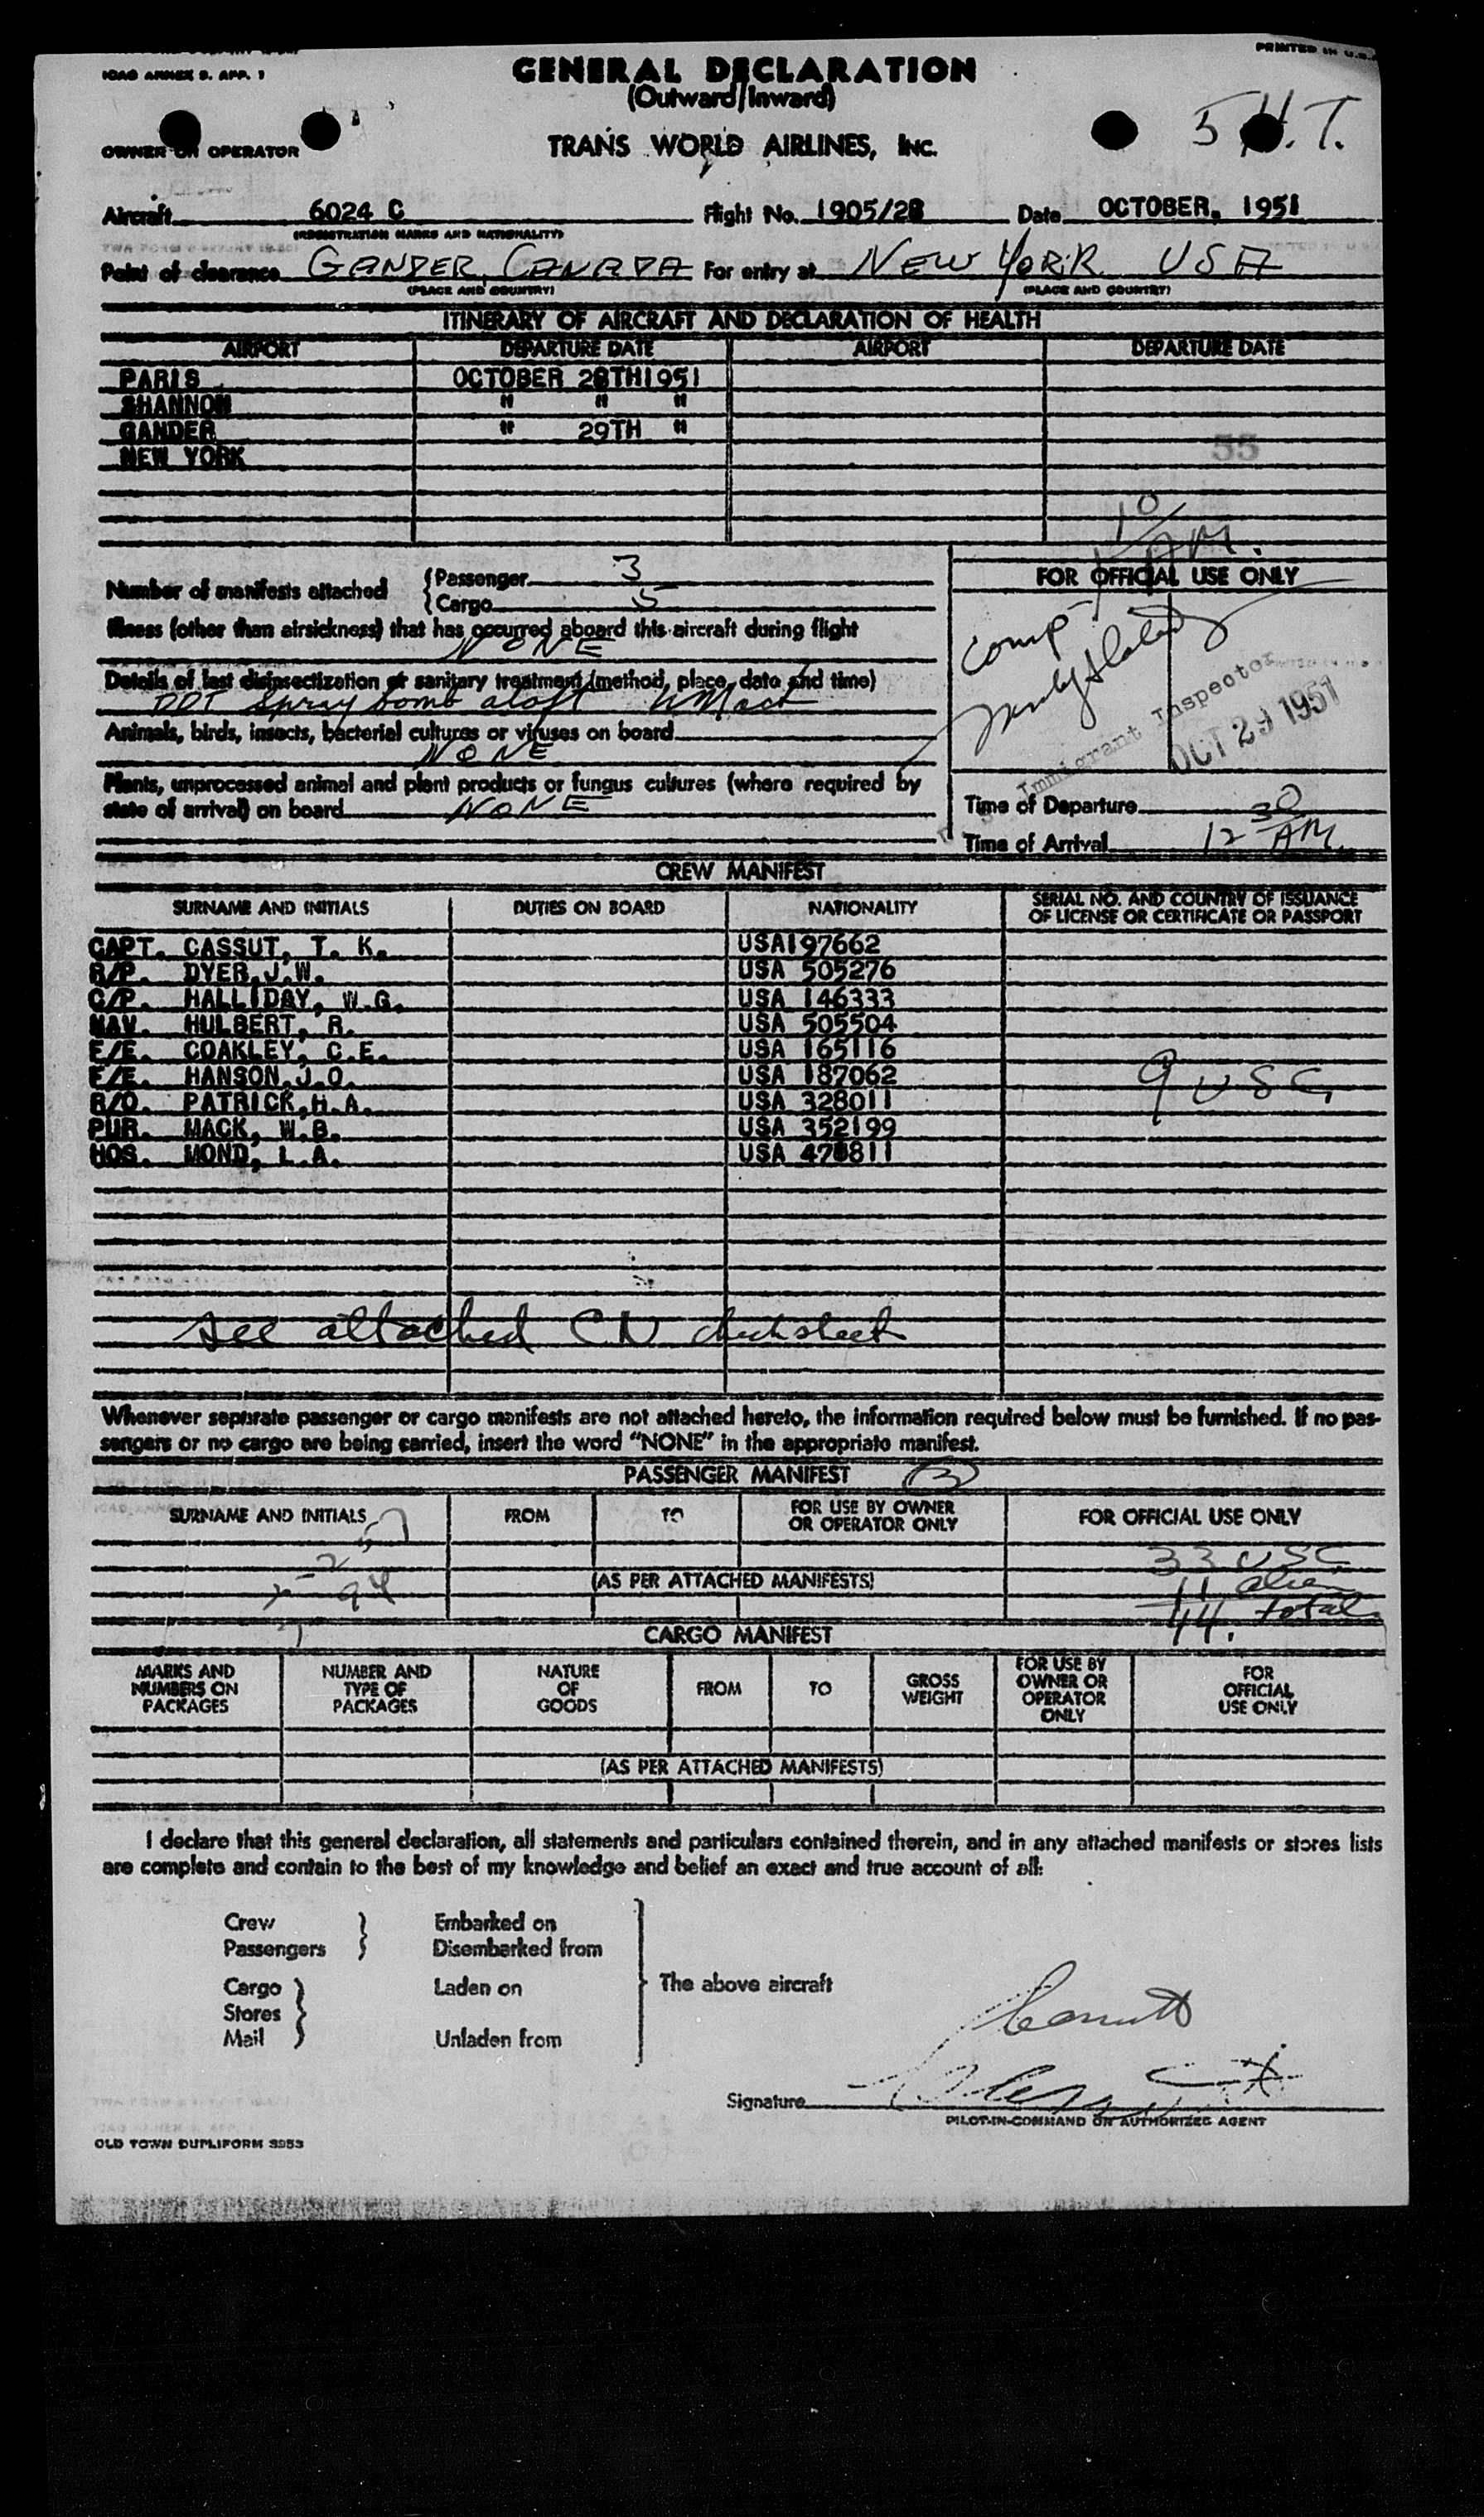 ICAO ANNEX 9. APP. 1
PRINTED IN U.S.A.
GENERAL DECLARATION
(Outward/Inward)
5 H.T.
OWNER OR OPERATOR
TRANS WORLD AIRLINES, INC.
Aircraft 6024 C Flight No. 1905/28 Date OCTOBER, 1951
(REGISTRATION MARKS AND NATIONALITY)
Point of clearance GANDER, CANADA For entry at NEW YORK USA
(PLACE AND COUNTRY) (PLACE AND COUNTRY)
ITINERARY OF AIRCRAFT AND DECLARATION OF HEALTH
AIRPORT DEPARTURE DATE AIRPORT DEPARTURE DATE
PARIS OCTOBER 28TH1951
SHANNON " " "
GANDER " 29TH "
NEW YORK
55
10
1 AM.
Number of manifests attached
{Passenger 3
{Cargo 5
FOR OFFICIAL USE ONLY
comp-
Illness (other than airsickness) that has occurred aboard this aircraft during flight
NONE
Details of last disinsectization or sanitary treatment (method, place, date and time)
DDT spray bomb aloft WMack
Immigrant Inspector
OCT 29 1951
Animals, birds, insects, bacterial cultures or viruses on board
NONE
Plants, unprocessed animal and plant products or fungus cultures (where required by
state of arrival) on board NONE
Time of Departure
Time of Arrival 12 30 AM.
CREW MANIFEST
SURNAME AND INITIALS DUTIES ON BOARD NATIONALITY SERIAL NO. AND COUNTRY OF ISSUANCE
OF LICENSE OR CERTIFICATE OR PASSPORT
CAPT. CASSUT, T. K. USA197662
R/P. DYER,J.W. USA 505276
C/P. HALLIDAY, W.G. USA 146333
NAV. HULBERT, R. USA 505504
F/E. COAKLEY, C.E. USA 165116
F/E. HANSON,J.O. USA 187062
9 USC
R/O. PATRICK,H.A. USA 328011
PUR. MACK, W.B. USA 352199
HOS. MOND, L.A. USA 478811
See attached CN checksheet
Whenever separate passenger or cargo manifests are not attached hereto, the information required below must be furnished. If no pas-
sengers or no cargo are being carried, insert the word "NONE" in the appropriate manifest.
PASSENGER MANIFEST 3
SURNAME AND INITIALS FROM TO FOR USE BY OWNER
OR OPERATOR ONLY
FOR OFFICIAL USE ONLY
33 USC
(AS PER ATTACHED MANIFESTS)
11 alien
44. total
CARGO MANIFEST
MARKS AND
NUMBERS ON
PACKAGES
NUMBER AND
TYPE OF
PACKAGES
NATURE
OF
GOODS
FROM
TO
GROSS
WEIGHT
FOR USE BY
OWNER OR
OPERATOR
ONLY
FOR
OFFICIAL
USE ONLY
(AS PER ATTACHED MANIFESTS)
I declare that this general declaration, all statements and particulars contained therein, and in any attached manifests or stores lists
are complete and contain to the best of my knowledge and belief an exact and true account of all:
Crew Embarked on
Passengers Disembarked from
Cargo Laden on The above aircraft
Stores
Mail Unladen from
Signature
PILOT-IN-COMMAND OR AUTHORIZED AGENT
OLD TOWN DUPLIFORM 3953